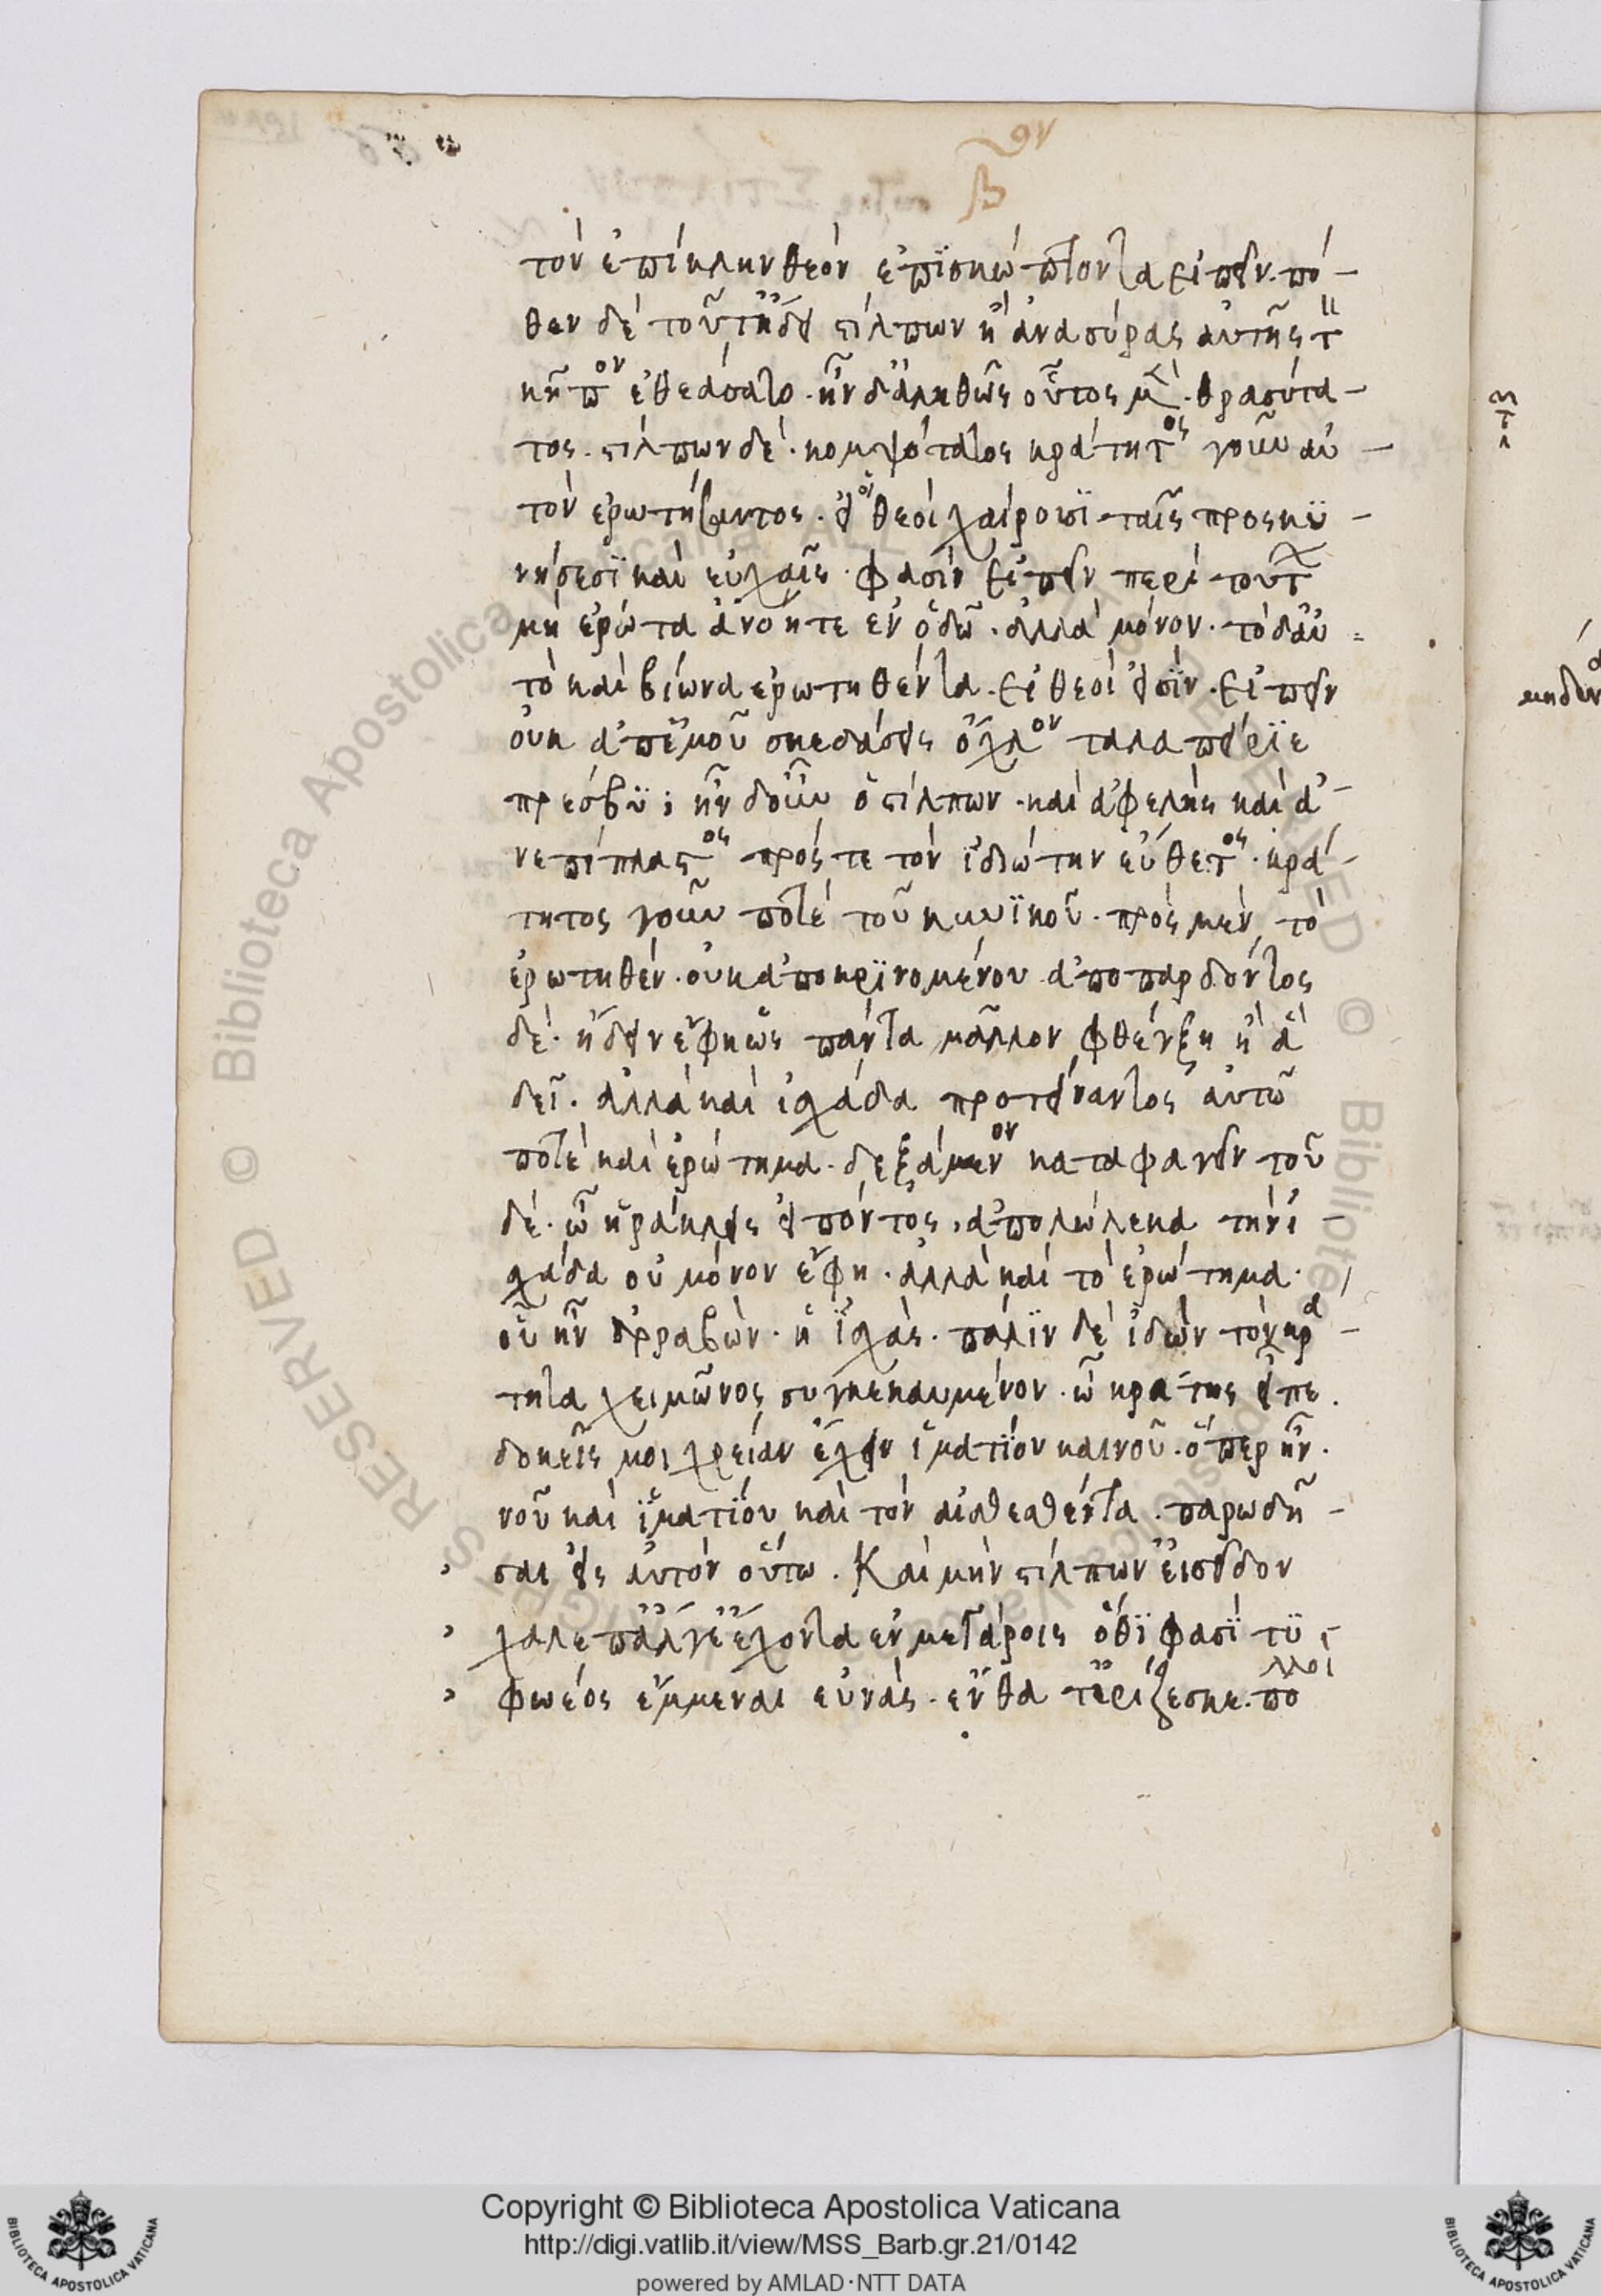 β
τὸν ἐπίκλην θεὸν ἐπϊσκώπτοντα εἰπεῖν. πό-
θεν δὲ τοῦτ ἤδει στίλπων ἢ ἀνασύρας αὐτῆς τ
κῆπον ἐθεάσατο. ἦν δ' ἀληθῶς οὗτος μὲν. θρασύτα-
τος. στίλπων δὲ. κομψότατος κράτητος γοῦν αὐ-
τὸν ἐρωτήσαντος. εἰ οἱ θεοὶ χαίρουσϊ ταῖς προσκϋ-
νήσεσϊ καὶ εὐχαῖς. φασὶν εἰπεῖν περὶ τούτ
μὴ ἐρώτα ἀνόητε ἐν ὁδῶ. ἀλλὰ μόνον. τὸ δ' αὐ=
τὸ καὶ βίωνα ἐρωτηθέντα. εἰ θεοὶ εἰσϊν. εἰπεῖν
οὐκ ἀπ' ἐμοῦ σκεδάσεις ὄχλον ταλαπείρϊε
πρέσβϋ; ἦν δ' οὖν ὁ στίλπων. καὶ ἀφελὴς καὶ ἀ-
νεπίπλαστος πρός τε τὸν ἰδιώτην εὔθετος. κρά-
τητος γοῦν ποτὲ τοῦ κυνϊκοῦ. πρὸς μὲν τὸ
ἐρωτηθὲν. οὐκ ἀποκρϊνομένου ἀποπαρδόντος
δὲ. ἤδειν ἔφη ὡς πάντα μᾶλλον φθέγξη ἢ ἃ
δεῖ. ἀλλὰ καὶ ἰσχάδα προτείναντος αὐτῶ
ποτὲ καὶ ἐρώτημα. δεξάμενον καταφαγεῖν τοῦ
δὲ. ὦ ἡράκλεις εἰπόντος, ἀπολώλεκα τὴν ἰ-
χάδα οὐ μόνον ἔφη. ἀλλὰ καὶ τὸ ἐρώτημα.
οὗ ἦν ἀρραβὼν. ἡ ἰχὰς. πάλϊν δὲ ἰδὼν τὸν κρά-
τητα χειμῶνος συγκεκαυμένον. ὦ κράτης εἶπε.
δοκεῖς μοι χρείαν ἔχειν ἱματίου καινοῦ. ὅπερ ἦν.
νοῦ καὶ ἱματίου καὶ τὸν αἰσθεσθέντα. παρωδῆ-
σαι εἰς αὐτὸν οὕτω. Καὶ μὴν στίλπων' εἰσεῖδον
χαλέπ' ἄλγε' ἔχοντα ἐν μεγάροις ὅθϊ φασϊ τϋ-
φωέος ἔμμεναι εὐνὰς. ἔνθα τ' ἐρίζεσκε. πολλοὶ
Copyright © Biblioteca Apostolica Vaticana
http://digi.vatlib.it/view/MSS_Barb.gr.21/0142
powered by AMLAD·NTT DATA